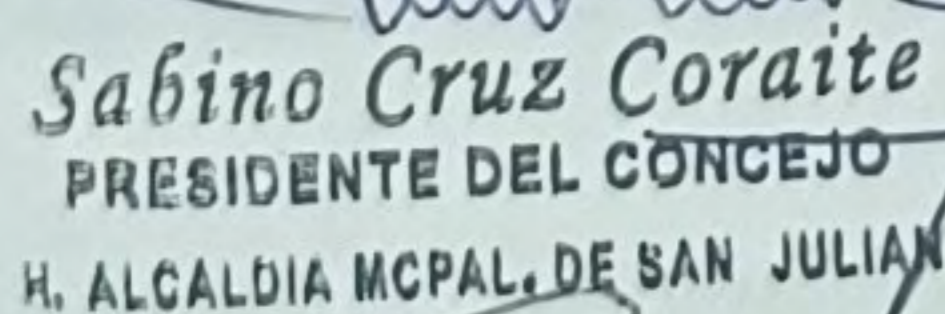 Sabino Cruz Coraite
PRESIDENTE DEL CONCEJO
H. ALCALDIA MCPAL. DE SAN JULIAN